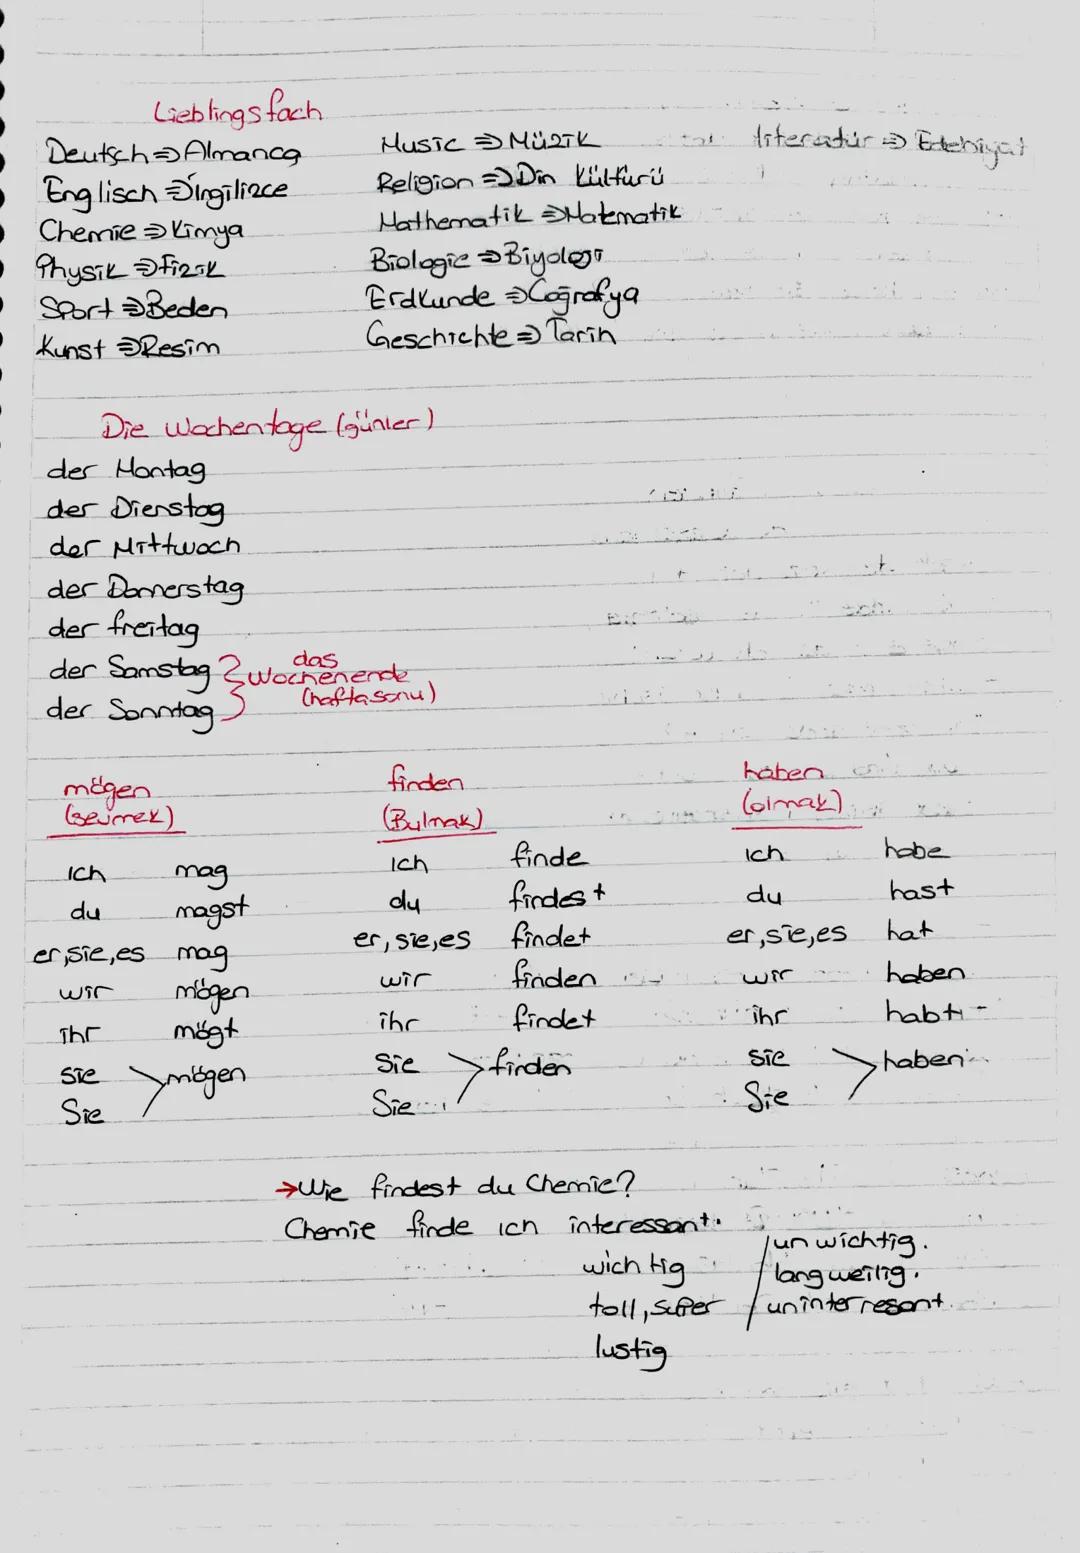 Lieblingsfach
Deutsch ⇒ Almanca
Englisch ⇒ İngilizce
Chemie ⇒ Kimya
Physik ⇒ Fizik
Sport ⇒ Beden
Kunst ⇒ Resim
Music ⇒ Müzik
Religion ⇒ Din Kültürü
Mathematik ⇒ Matematik
Biologie ⇒ Biyoloji
Erdkunde ⇒ Coğrafya
Geschichte ⇒ Tarih
literatür ⇒ Edebiyat
Die Wochentage (günler)
der Montag
der Dienstag
der Mittwoch
der Donnerstag
der freitag
der Samstag
der Sonntag
das
Wochenende
(haftasonu)
mögen
(sevmek)
ich mag
du magst
er,sie,es mag
wir mögen
ihr mögt
sie
Sie
mögen
finden
(Bulmak)
ich finde
du findest
er,sie,es findet
wir finden
ihr findet
sie
Sie
finden
haben
(olmak)
ich habe
du hast
er,sie,es hat
wir haben
ihr habt
sie
Sie
haben
→ Wie findest du Chemie?
Chemie finde ich interessant.
wichtig
toll, super
lustig
/ unwichtig.
langweilig.
uninterresant.